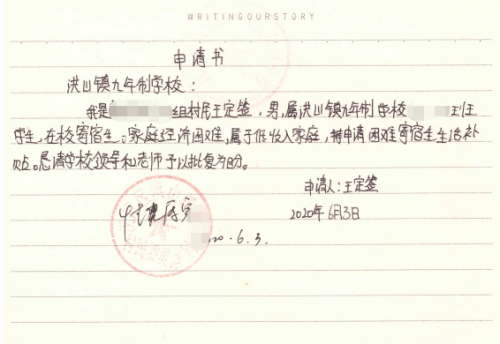 WRITINGOURSTORY
申请书
洪山镇九年制学校：
我是 组村民王定签，男，属洪山镇九年制学校 班
学生，在校寄宿生。家庭经济困难，属于低收入家庭，特申请困难寄宿生生活补
贴。恳请学校领导和老师予以批复为盼。
申请人：王定签
2020年6月3日
情况属实
2020.6.3.